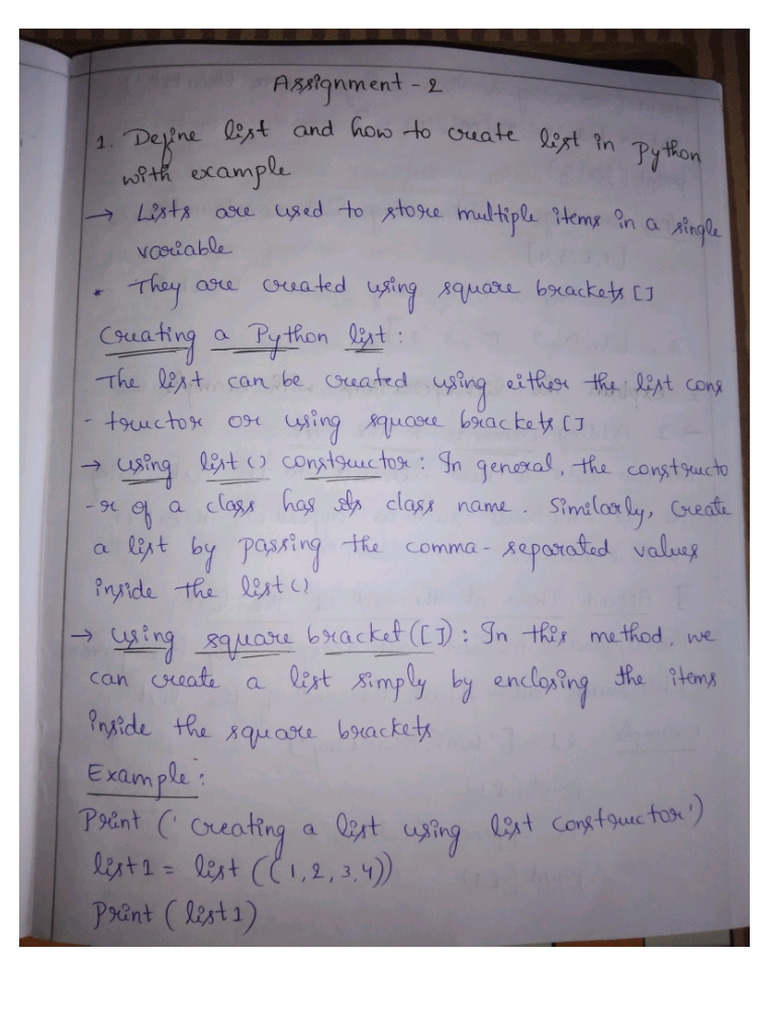 Assignment - 2
1. Define list and how to create list in Python
with example
→ Lists are used to store multiple items in a single
variable
* They are created using square brackets []
Creating a Python list:
The list can be created using either the list cons
- tructor or using square brackets []
→ using list() constructor: In general, the constructo
-r of a class has its class name. Similarly, Create
a list by passing the comma-separated values
inside the list()
→ using square bracket([]): In this method, we
can create a list simply by enclosing the items
inside the square brackets
Example:
Print ('Creating a list using list constructor')
list1 = list ((1,2,3,4))
Print (list1)